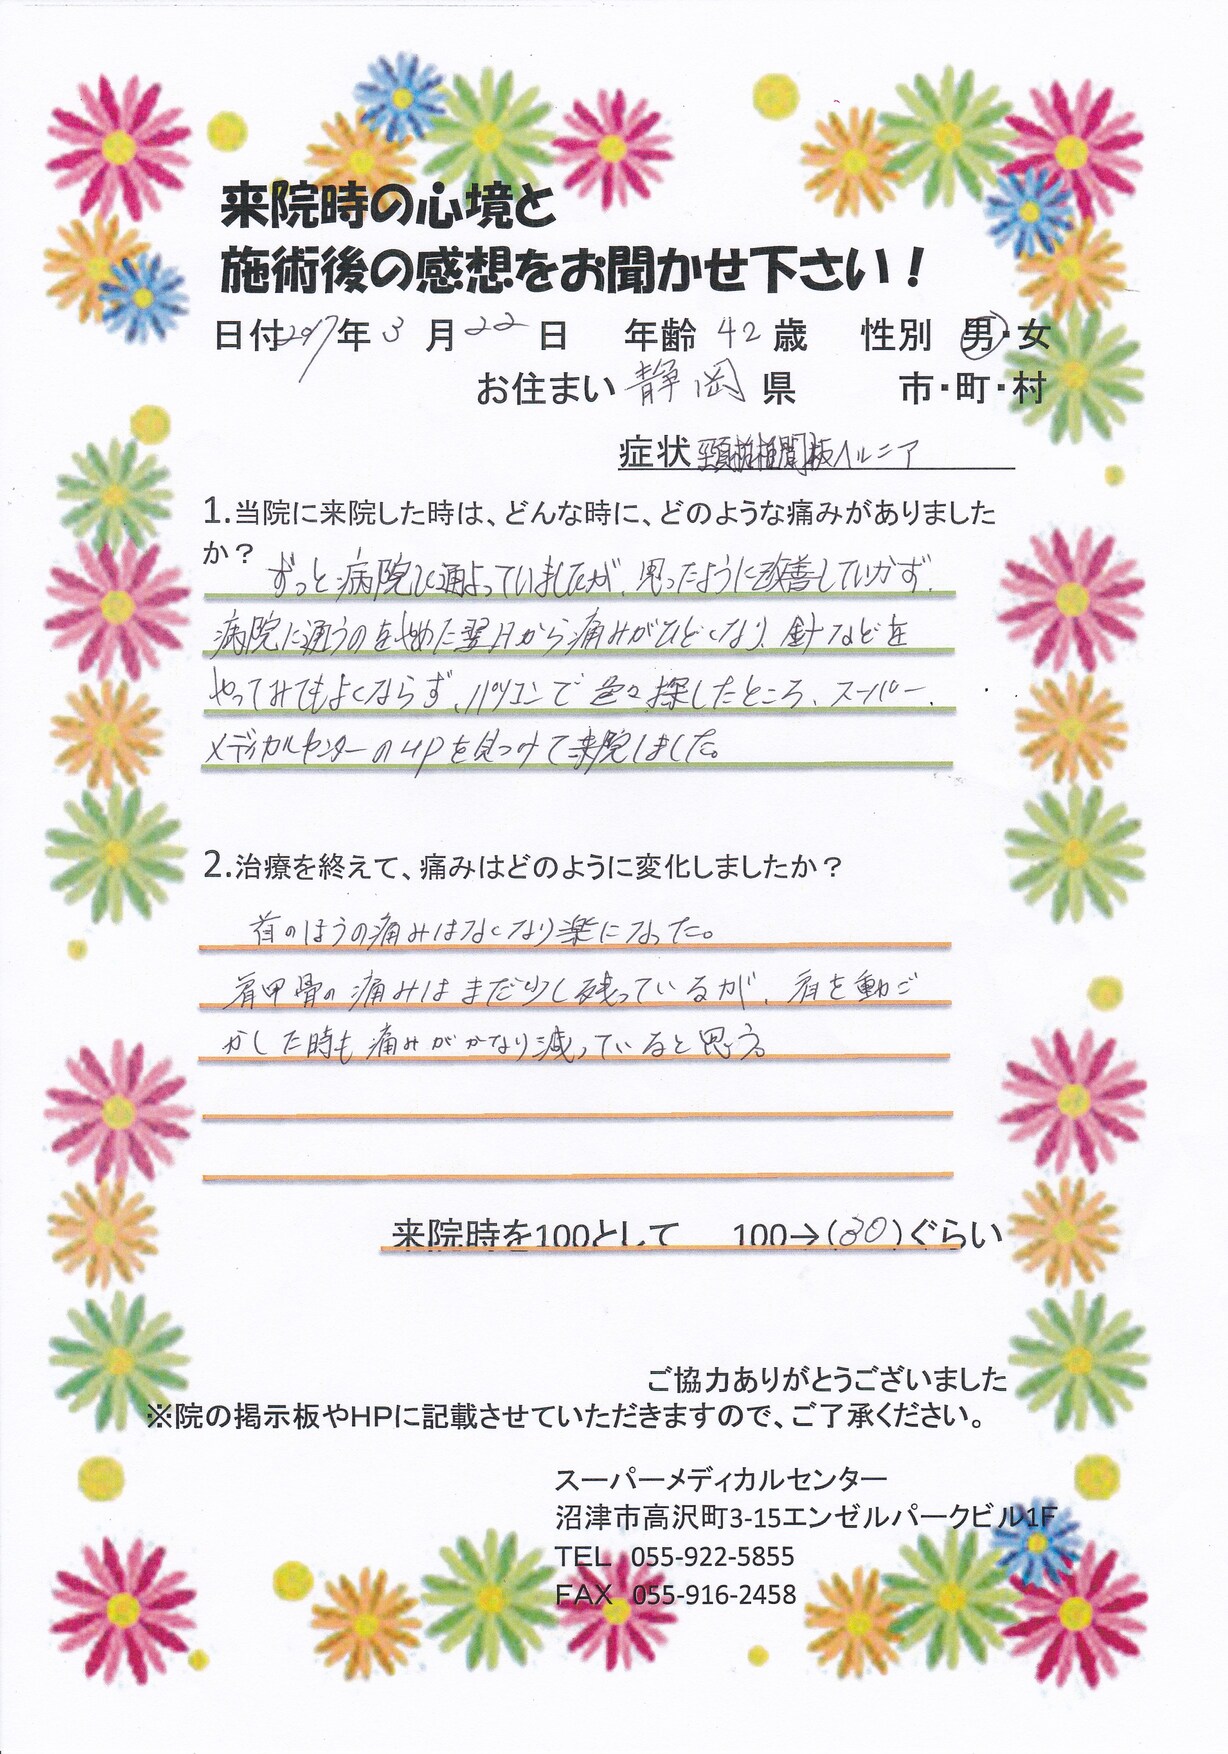 来院時の心境と
施術後の感想をお聞かせ下さい！
日付2017年3月22日 年齢42歳 性別 男・女
お住まい静岡県 市・町・村
症状 頸椎椎間板ヘルニア
1.当院に来院した時は、どんな時に、どのような痛みがありました
か？ ずっと病院に通よっていましたが、思ったように改善していかず、
病院に通うのをやめた翌日から痛みがひどくなり、針などを
やってみてもよくならず、パソコンで色々探したところ、スーパー
メディカルセンターのHPを見つけて来院しました。
2.治療を終えて、痛みはどのように変化しましたか？
首のほうの痛みはなくなり楽になった。
肩甲骨の痛みはまだ少し残っているが、肩を動ご
かした時も痛みがかなり減っていると思う。
来院時を100として 100→(30)ぐらい
ご協力ありがとうございました
※院の掲示板やHPに記載させていただきますので、ご了承ください。
スーパーメディカルセンター
沼津市高沢町3-15エンゼルパークビル1F
TEL 055-922-5855
FAX 055-916-2458